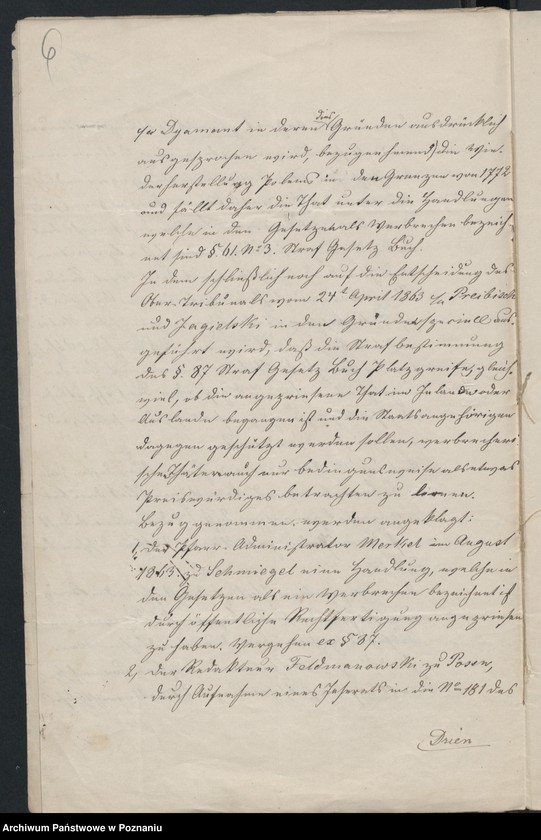 6
dies
c/a Dyamant in deren Gründen ausdrücklich
ausgesprochen wird, bezugnehmend, die Wie-
derherstellung Polens in den Grenzen von 1772
und fällt daher die That unter die Handlungen
welche in den Gesetzen als Verbrechen bezeich-
net sind § 61. No 3. Straf Gesetz Buch.
In dem schließlich noch auf die Entscheidung des
Ober-Tribunals vom 24t April 1863 c/a Preibisch
und Jagielski in den Gründen speciell aus-
geführt wird, daß die Strafbestimmung
des §. 87 Straf Gesetz Buch Platz greife, gleich-
viel, ob die angepriesene That im Inlande oder
Auslande begangen ist und die Staatsangehörigen
dagegen geschützt werden sollen, verbrecheri-
sche Thäter auch nur bedingungsweise als etwas
Preiswürdiges betrachten zu lernen.
Bezug genommen. werden angeklagt:
1, Der Pfarr-Administrator Mertzel im August
1863. zu Schmiegel eine Handlung, welche in
den Gesetzen als ein Verbrechen bezeichnet ist
durch öffentliche Rechtfertigung angepriesen
zu haben. Vergehen ex § 87.
2, der Redakteur Feldmanowski zu Posen,
durch Aufnahme eines Inserats in die No 181 des
Dzien
Archiwum Państwowe w Poznaniu